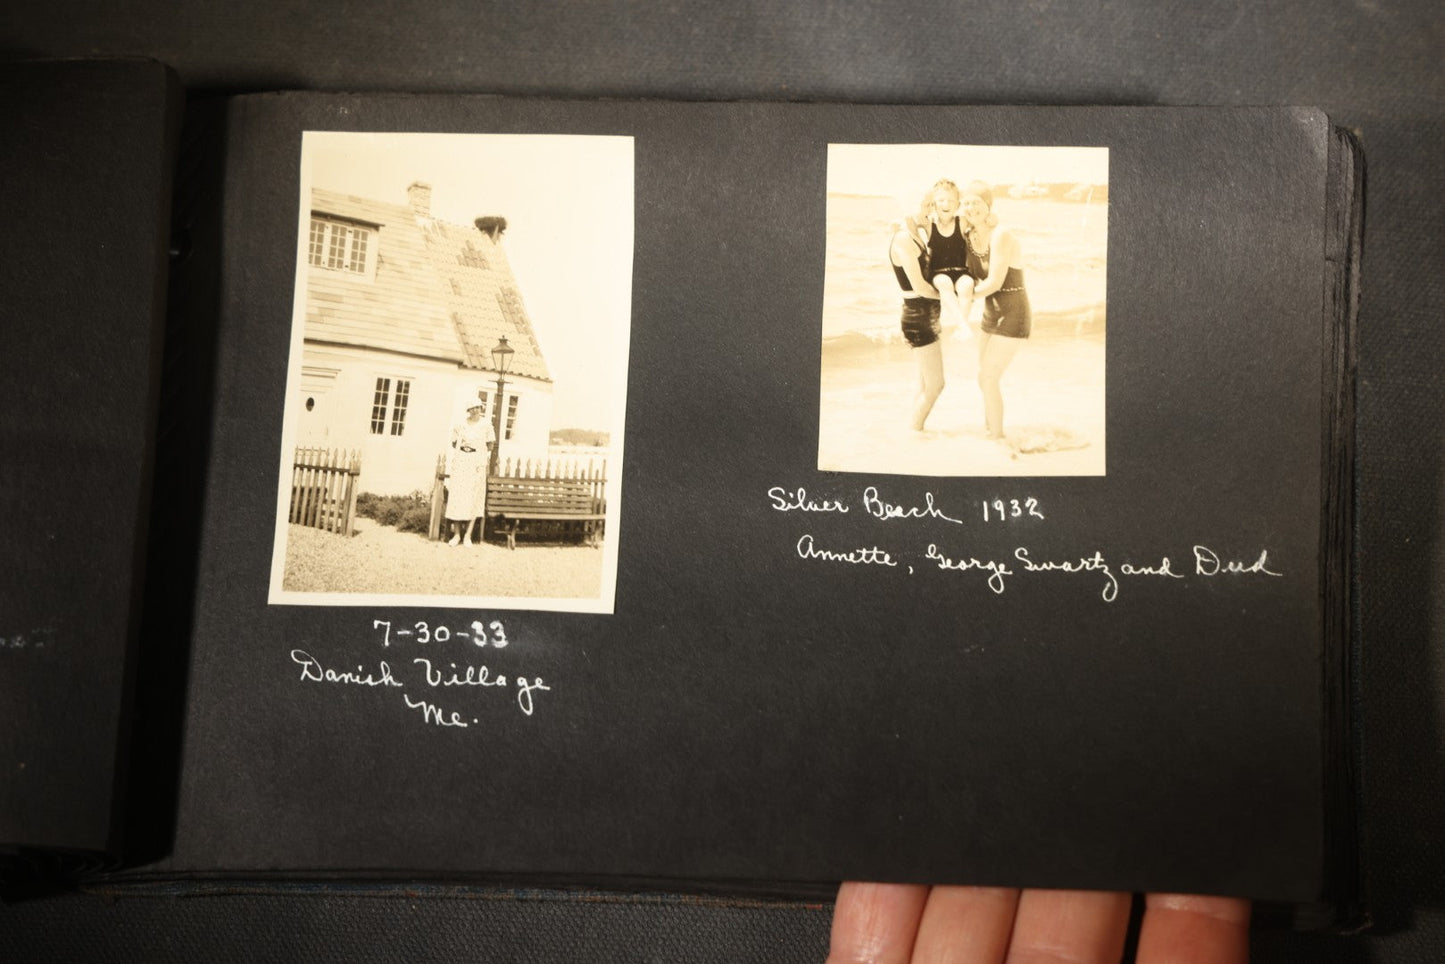 7-30-33
Danish Village
Me.
Silver Beach 1932
Annette, George Swartz and Dud